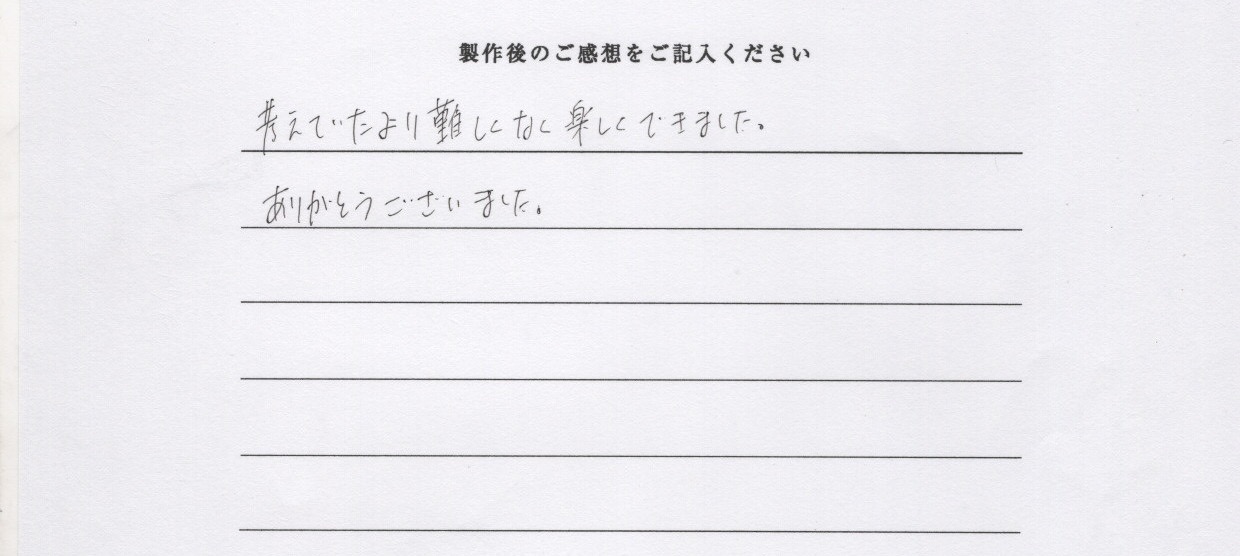 製作後のご感想をご記入ください
考えていたより難しくなく楽しくできました。
ありがとうございました。